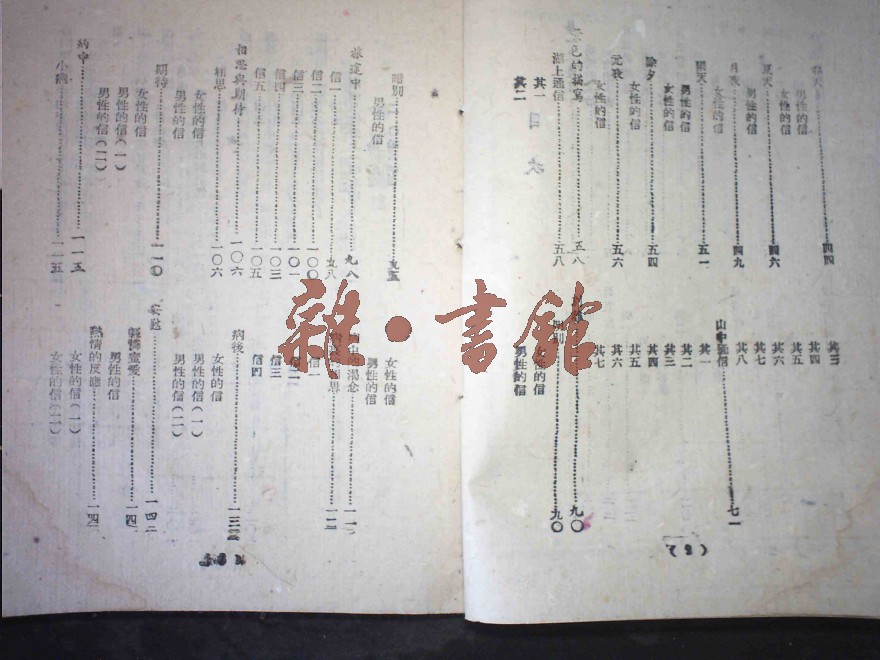 男性的信
女性的信
男性的信……四四
夏天……四六
男性的信
女性的信
月夜……四九
雨天……五一
男性的信
女性的信
除夕……五四
女性的信
元夜……五六
女性的信
景色的描寫……五八
湖上通信……五八
其一
其二
目次
其三
其四
其五
其六
其七
其八
山中通信……七一
其一
其二
其三
其四
其五
其六
其七
九〇
九〇
女性的信
男性的信
(5)
九五
男性的信
旅途中……九八
信一……九八
信二……一〇〇
信三……一〇一
信四……一〇三
信五……一〇五
相思與期待……一〇六
相思……一〇六
女性的信
男性的信
期待……一一〇
女性的信
男性的信(一)
男性的信(二)
病中……一一五
小病……一一五
女性的信
男性的信
信一
信二
信三
信四
病後
女性的信
男性的信(一)
男性的信(二)
安慰……一四二
輕憐蜜愛
男性的信
熱情的反應
女性的信(一)
女性的信(二)
雜·書館